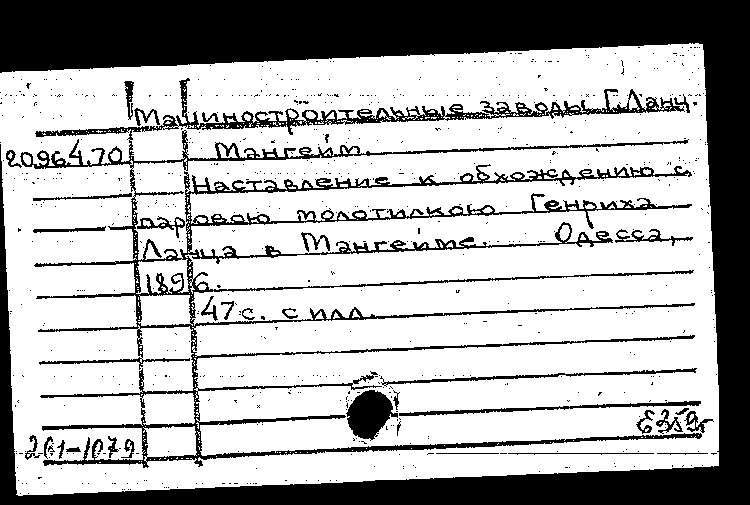 Машиностроительные заводы Г. Ланц.
20.96.4.70 Мангейм.
Наставление к обхождению с
паровою молотилкою Генриха
Ланца в Мангейме. Одесса,
1896.
47 с. с илл.
261-1079